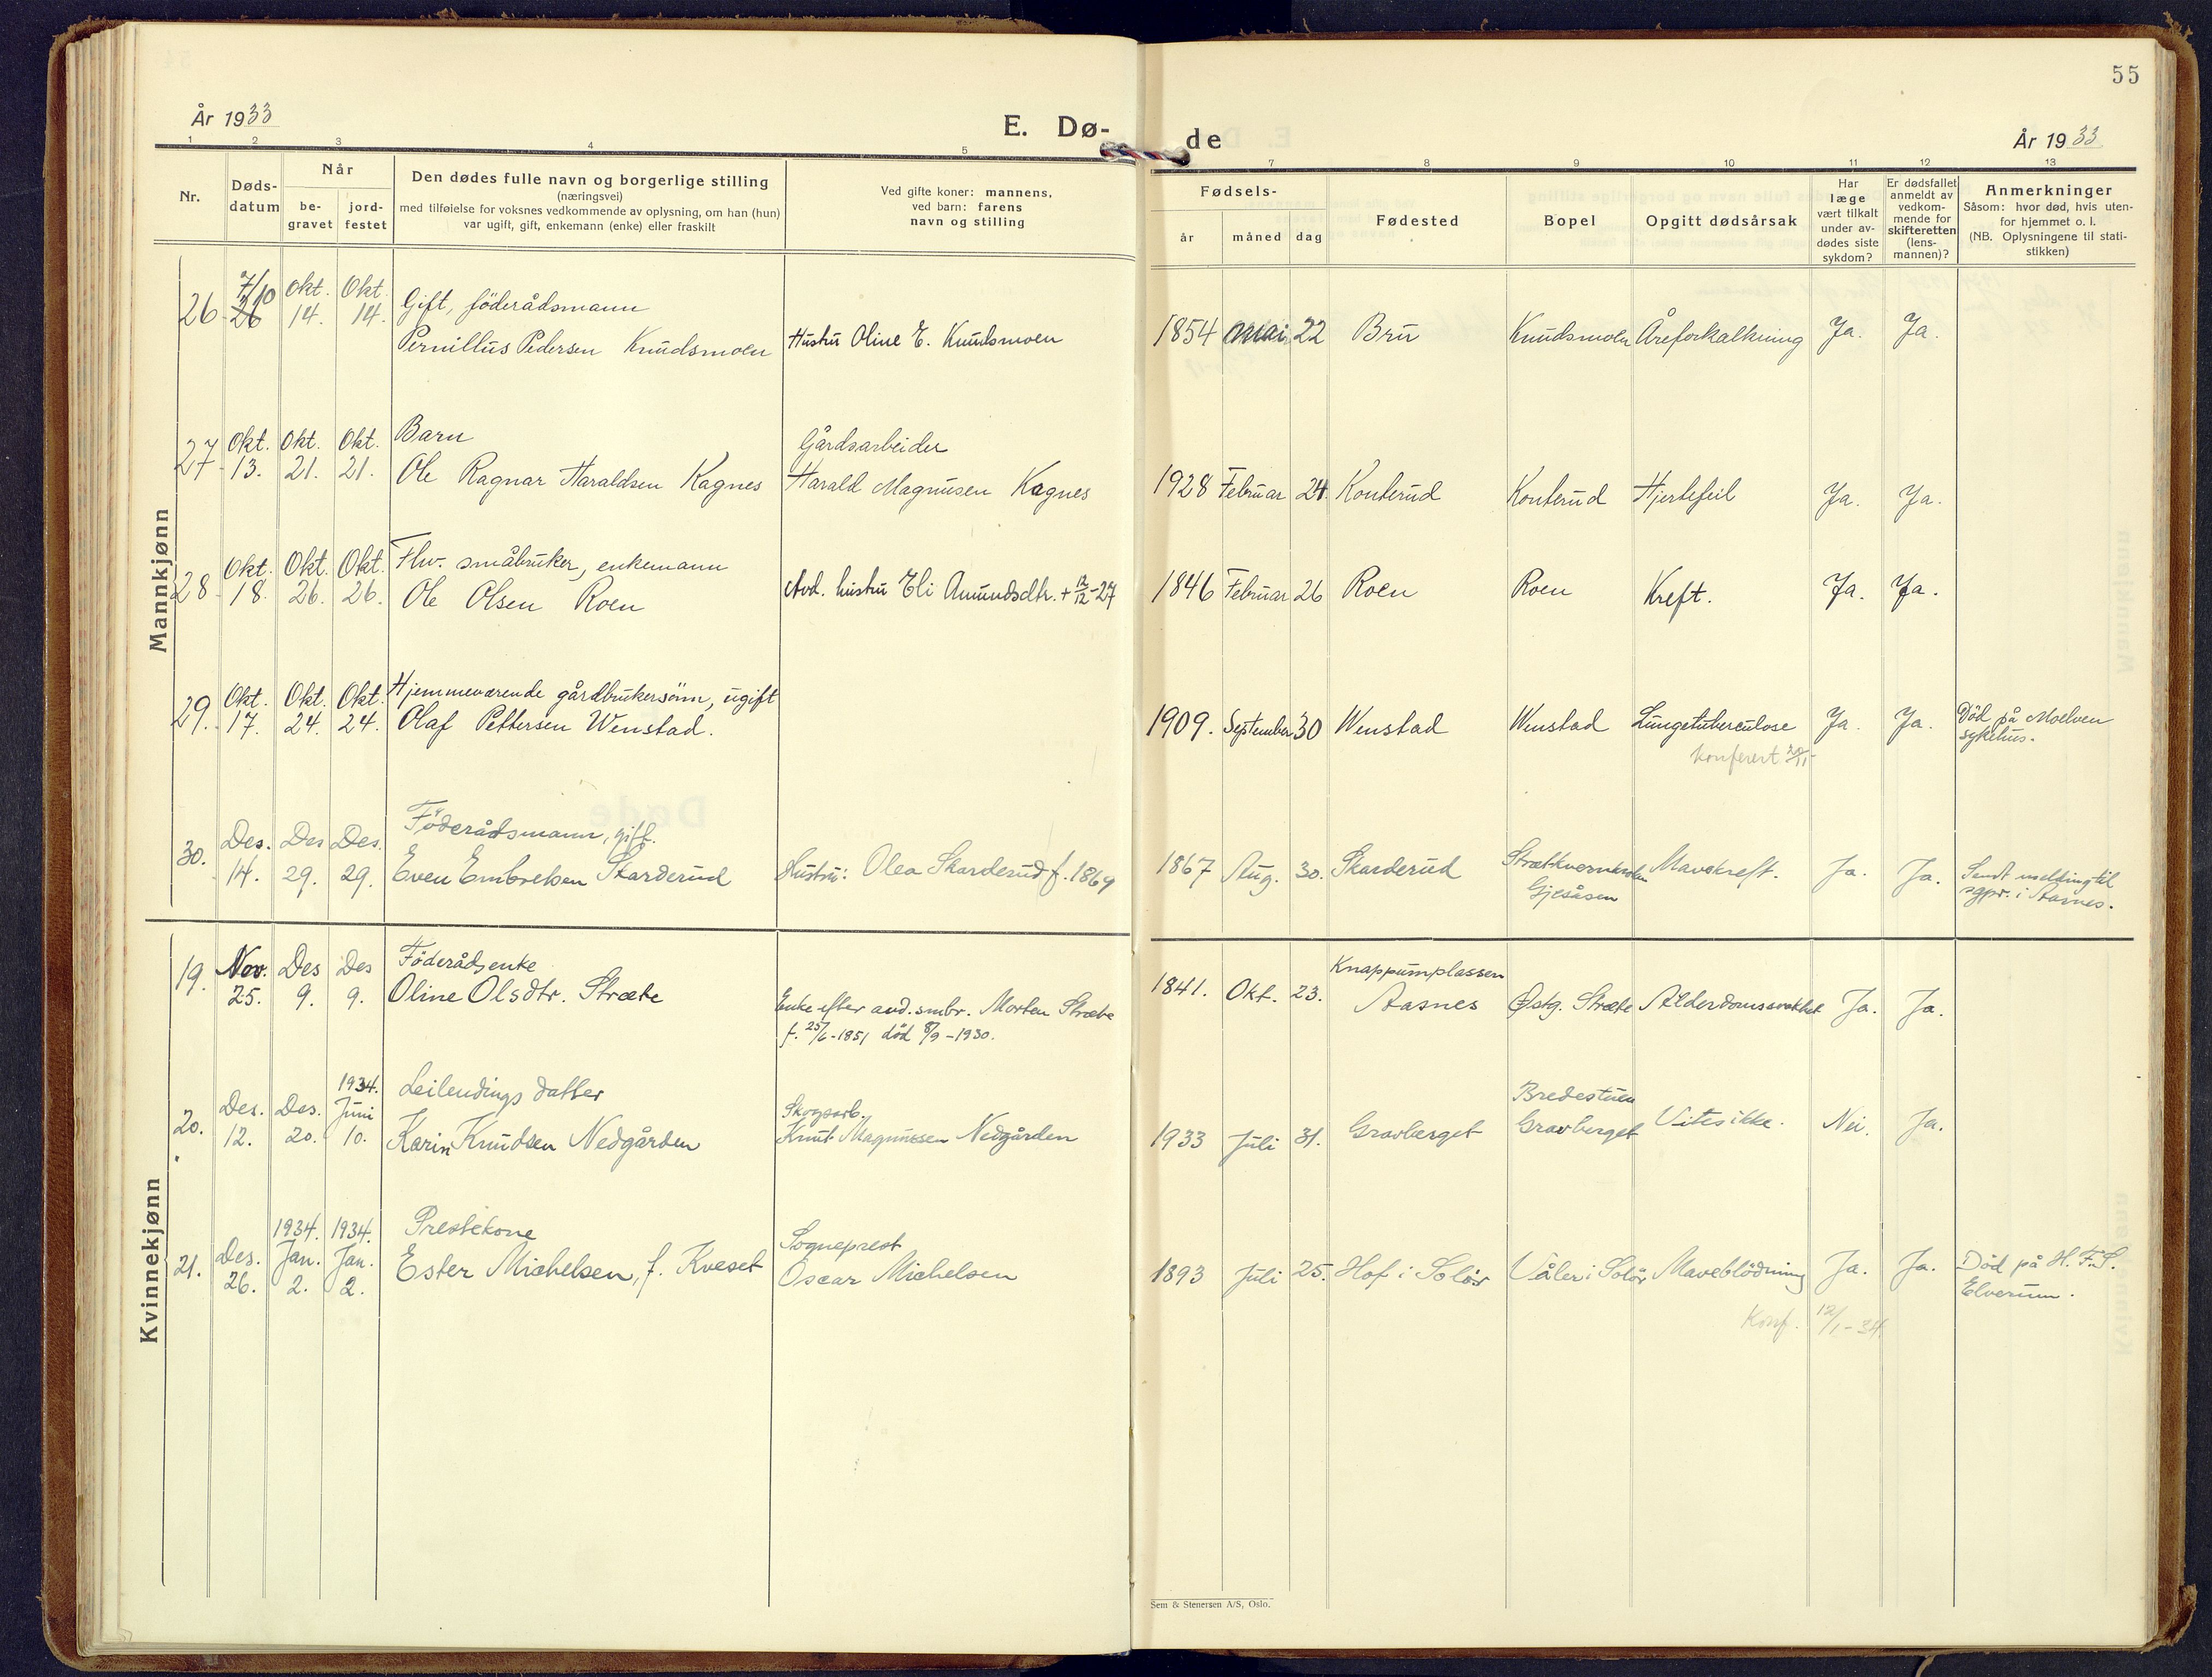 55
År 1933
E. Dø-
de
År 1933
1 2 3 4 5 7 8 9 10 11 12 13
Nr.
Døds-
datum
Når
be-
gravet
jord-
festet
Den dødes fulle navn og borgerlige stilling
(næringsvei)
med tilføielse for voksnes vedkommende av oplysning, om han (hun)
var ugift, gift, enkemann (enke) eller fraskilt
Ved gifte koner: mannens,
ved barn: farens
navn og stilling
Fødsels-
år måned dag
Fødested
Bopel
Opgitt dødsårsak
Har
læge
vært tilkalt
under av-
dødes siste
sykdom?
Er dødsfallet
anmeldt av
vedkom-
mende for
skifteretten
(lens-
mannen)?
Anmerkninger
Såsom: hvor død, hvis uten-
for hjemmet o. l.
(NB. Oplysningene til stati-
stikken)
Mannkjønn
7/10 Okt. Okt.
26 26 14. 14. Gift, föderådsmann
Pernillus Pedersen Knudsmoen Hustru Oline E. Knudsmoen 1854 Mai 22 Bru Knudsmoen Åreforkalkning Ja. Ja.
Okt. Okt. Okt. Barn Gårdsarbeider
27 13. 21. 21. Ole Ragnar Haraldsen Kagnes Harald Magnusen Kagnes 1928 Februar 24. Konterud Konterud Hjertefeil Ja. Ja.
Okt. Okt. Okt. Fhv. småbruker, enkemann
28 18. 26. 26. Ole Olsen Roen Avd. hustru Eli Amundsdtr. + 12/12-27 1846 Februar 26 Roen Roen Kreft. Ja. Ja.
Okt. Okt. Okt. Hjemmeværende gårdbrukersönn, ugift
29. 17. 24. 24. Olaf Pettersen Wenstad. 1909. September 30 Wenstad Wenstad Lungetuberculose Ja. Ja. Död på Moelven
sykehus.
konferert 20/11-
Des. Des Des. Föderådsmann, gift.
30. 14. 29. 29. Even Embretsen Skarderud Hustru: Olea Skarderud f. 1869 1867 Aug. 30. Skarderud Gjesåsen Mavekreft. Ja. Ja. Sendt melding til
sgpr. i Aasnes.
Kvinnekjønn
Nov. Des Des Föderådsenke
19. 25. 9. 9. Oline Olsdtr. Stræte Enke efter avd. smbr. Morten Stræte
f. 25/6-1851 död 8/9-1930.
1841. Okt. 23. Knappumplassen
Aasnes Østg. Stræte Alderdomssvakhet Ja. Ja.
1934.
Des. Des. Juni Leilendings datter Skogsarb.
20. 12. 20. 10. Karin Knudsen Nedgården Knut Magnussen Nedgården 1933 Juli 31. Gravberget Bredestuen
Gravberget Vites ikke. Nei. Ja.
1934. 1934. Prestekone Sogneprest
21. Des. Jan. Jan. Ester Michelsen, f. Kveset Oscar Michelsen
26. 2. 2.
1893 Juli 25. Hof i Solör Våler i Solör Maveblödning Ja. Ja. Död på H. F. S.
Elverum.
Konf. 12/1-34.
Sem & Stenersen A/S, Oslo.